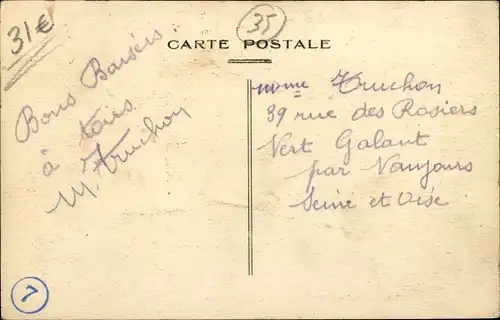 31€
35
CARTE POSTALE
Bons Baisers
à tous
M. Truchon
Mme Truchon
39 rue des Rosiers
Vert Galant
par Vaujours
Seine et Oise
7